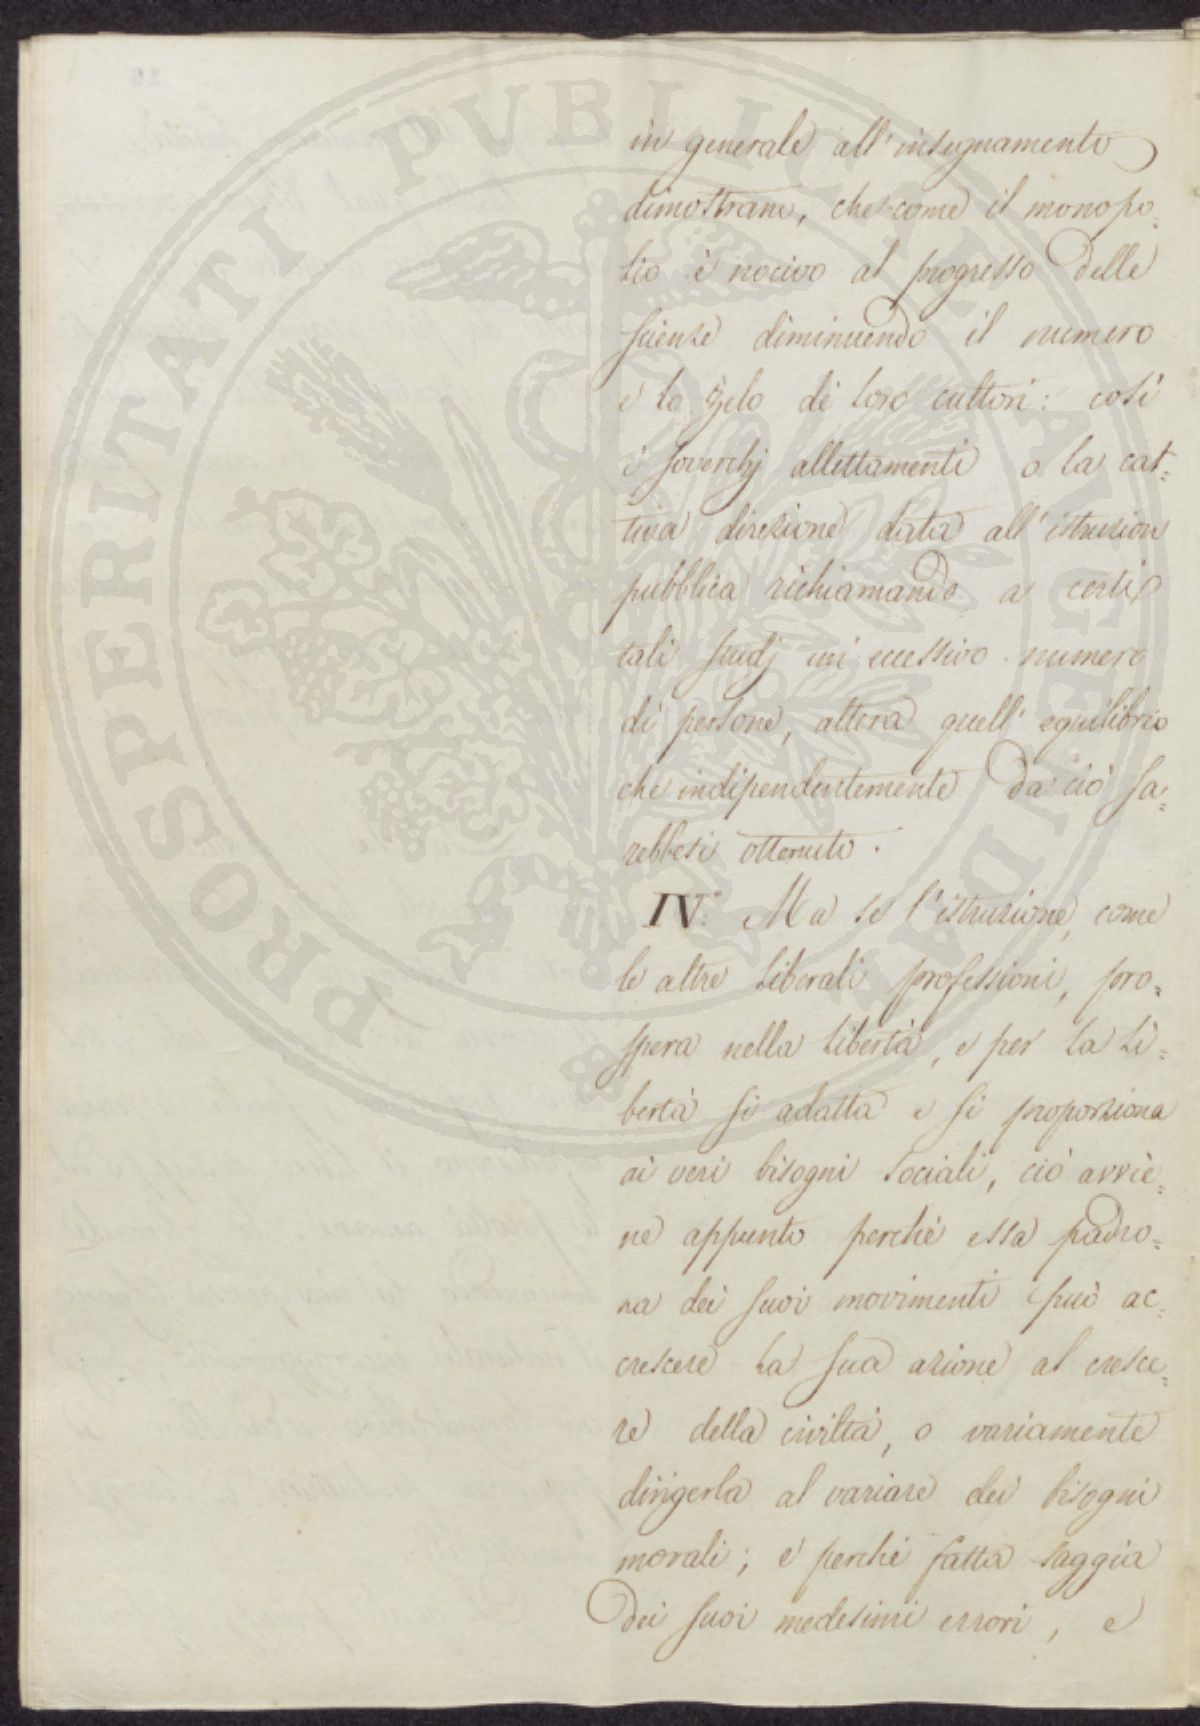 PROSPERITATI PUBLICAE AUGENDAE
in generale all'insegnamento
dimostrano, che come il monopo=
lio è nocivo al progresso delle
scienze diminuendo il numero
e lo zelo di loro cultori: così
i soverchj allettamenti o la cat=
tiva direzione data all'istruzion
pubblica richiamando a certi
tali studj un eccessivo numero
di persone, altera quell'equilibrio
che indipendentemente da ciò sa=
rebbesi ottenuto.
IV.° Ma se l'istruzione, come
le altre liberali professioni, pro=
spera nella libertà, e per la li=
bertà si adatta e si proporziona
ai veri bisogni sociali, ciò avvie=
ne appunto perchè essa padro=
na dei suoi movimenti può ac=
crescere la sua azione al cresce=
re della civiltà, o variamente
dirigerla al variare dei bisogni
morali; e perchè fatta saggia
dei suoi medesimi errori, e